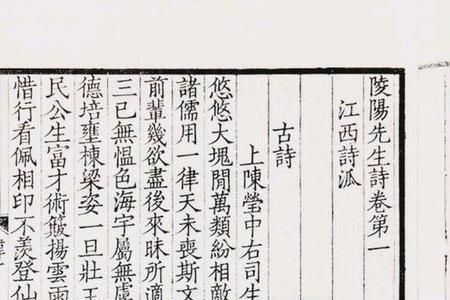 陵陽先生詩卷第一
江西詩派
古詩
上陳瑩中右司生
悠悠大塊閒萬類紛相敵
諸儒用一律天未喪斯文
前輩幾欲盡後來昧所適
三已無慍色海宇屬無虞
德培壅棟梁姿一旦壯王
民公生富才術簸揚雲雨
惜行看佩相印不羨登仙